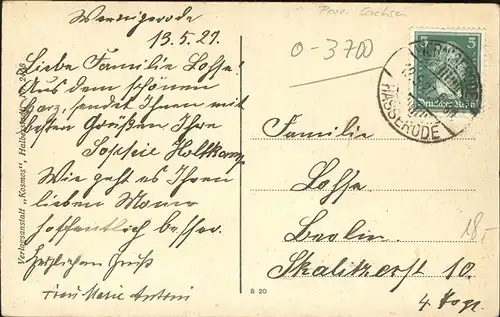 Wernigerode
13.5.27.
Liebe Familie Losse!
Aus dem schönen
Harz, sendet Ihnen mit
besten Grüßen Ihre
Sophie Holtkamp
Wie geht es Ihrem
lieben Mann
hoffentlich besser.
Herzlichen Gruß
Frau Marie Antoni
Verlagsanstalt „Kosmos", Halberstadt
Prov. Sachsen
0-3700
5 5
Deutsches Reich
WERNIGERODE
HASSERODE
Familie
Losse
Berlin.
Skalitzerst 10.
4 Tr
18.-
S. 20